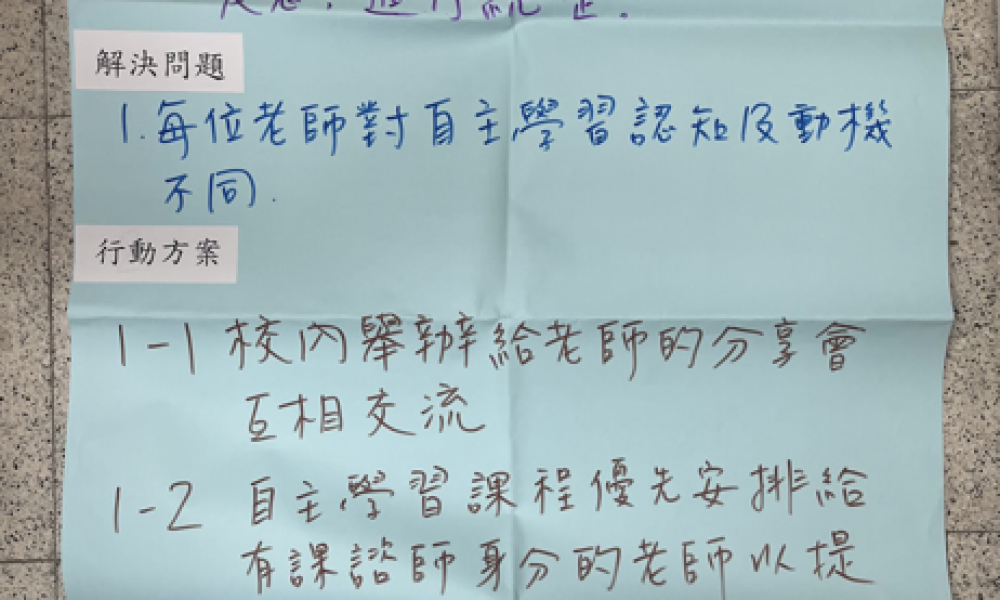 解決問題
1.每位老師對自主學習認知及動機
不同.
行動方案
1-1 校內舉辦給老師的分享會
互相交流
1-2 自主學習課程優先安排給
有課諮師身分的老師以提